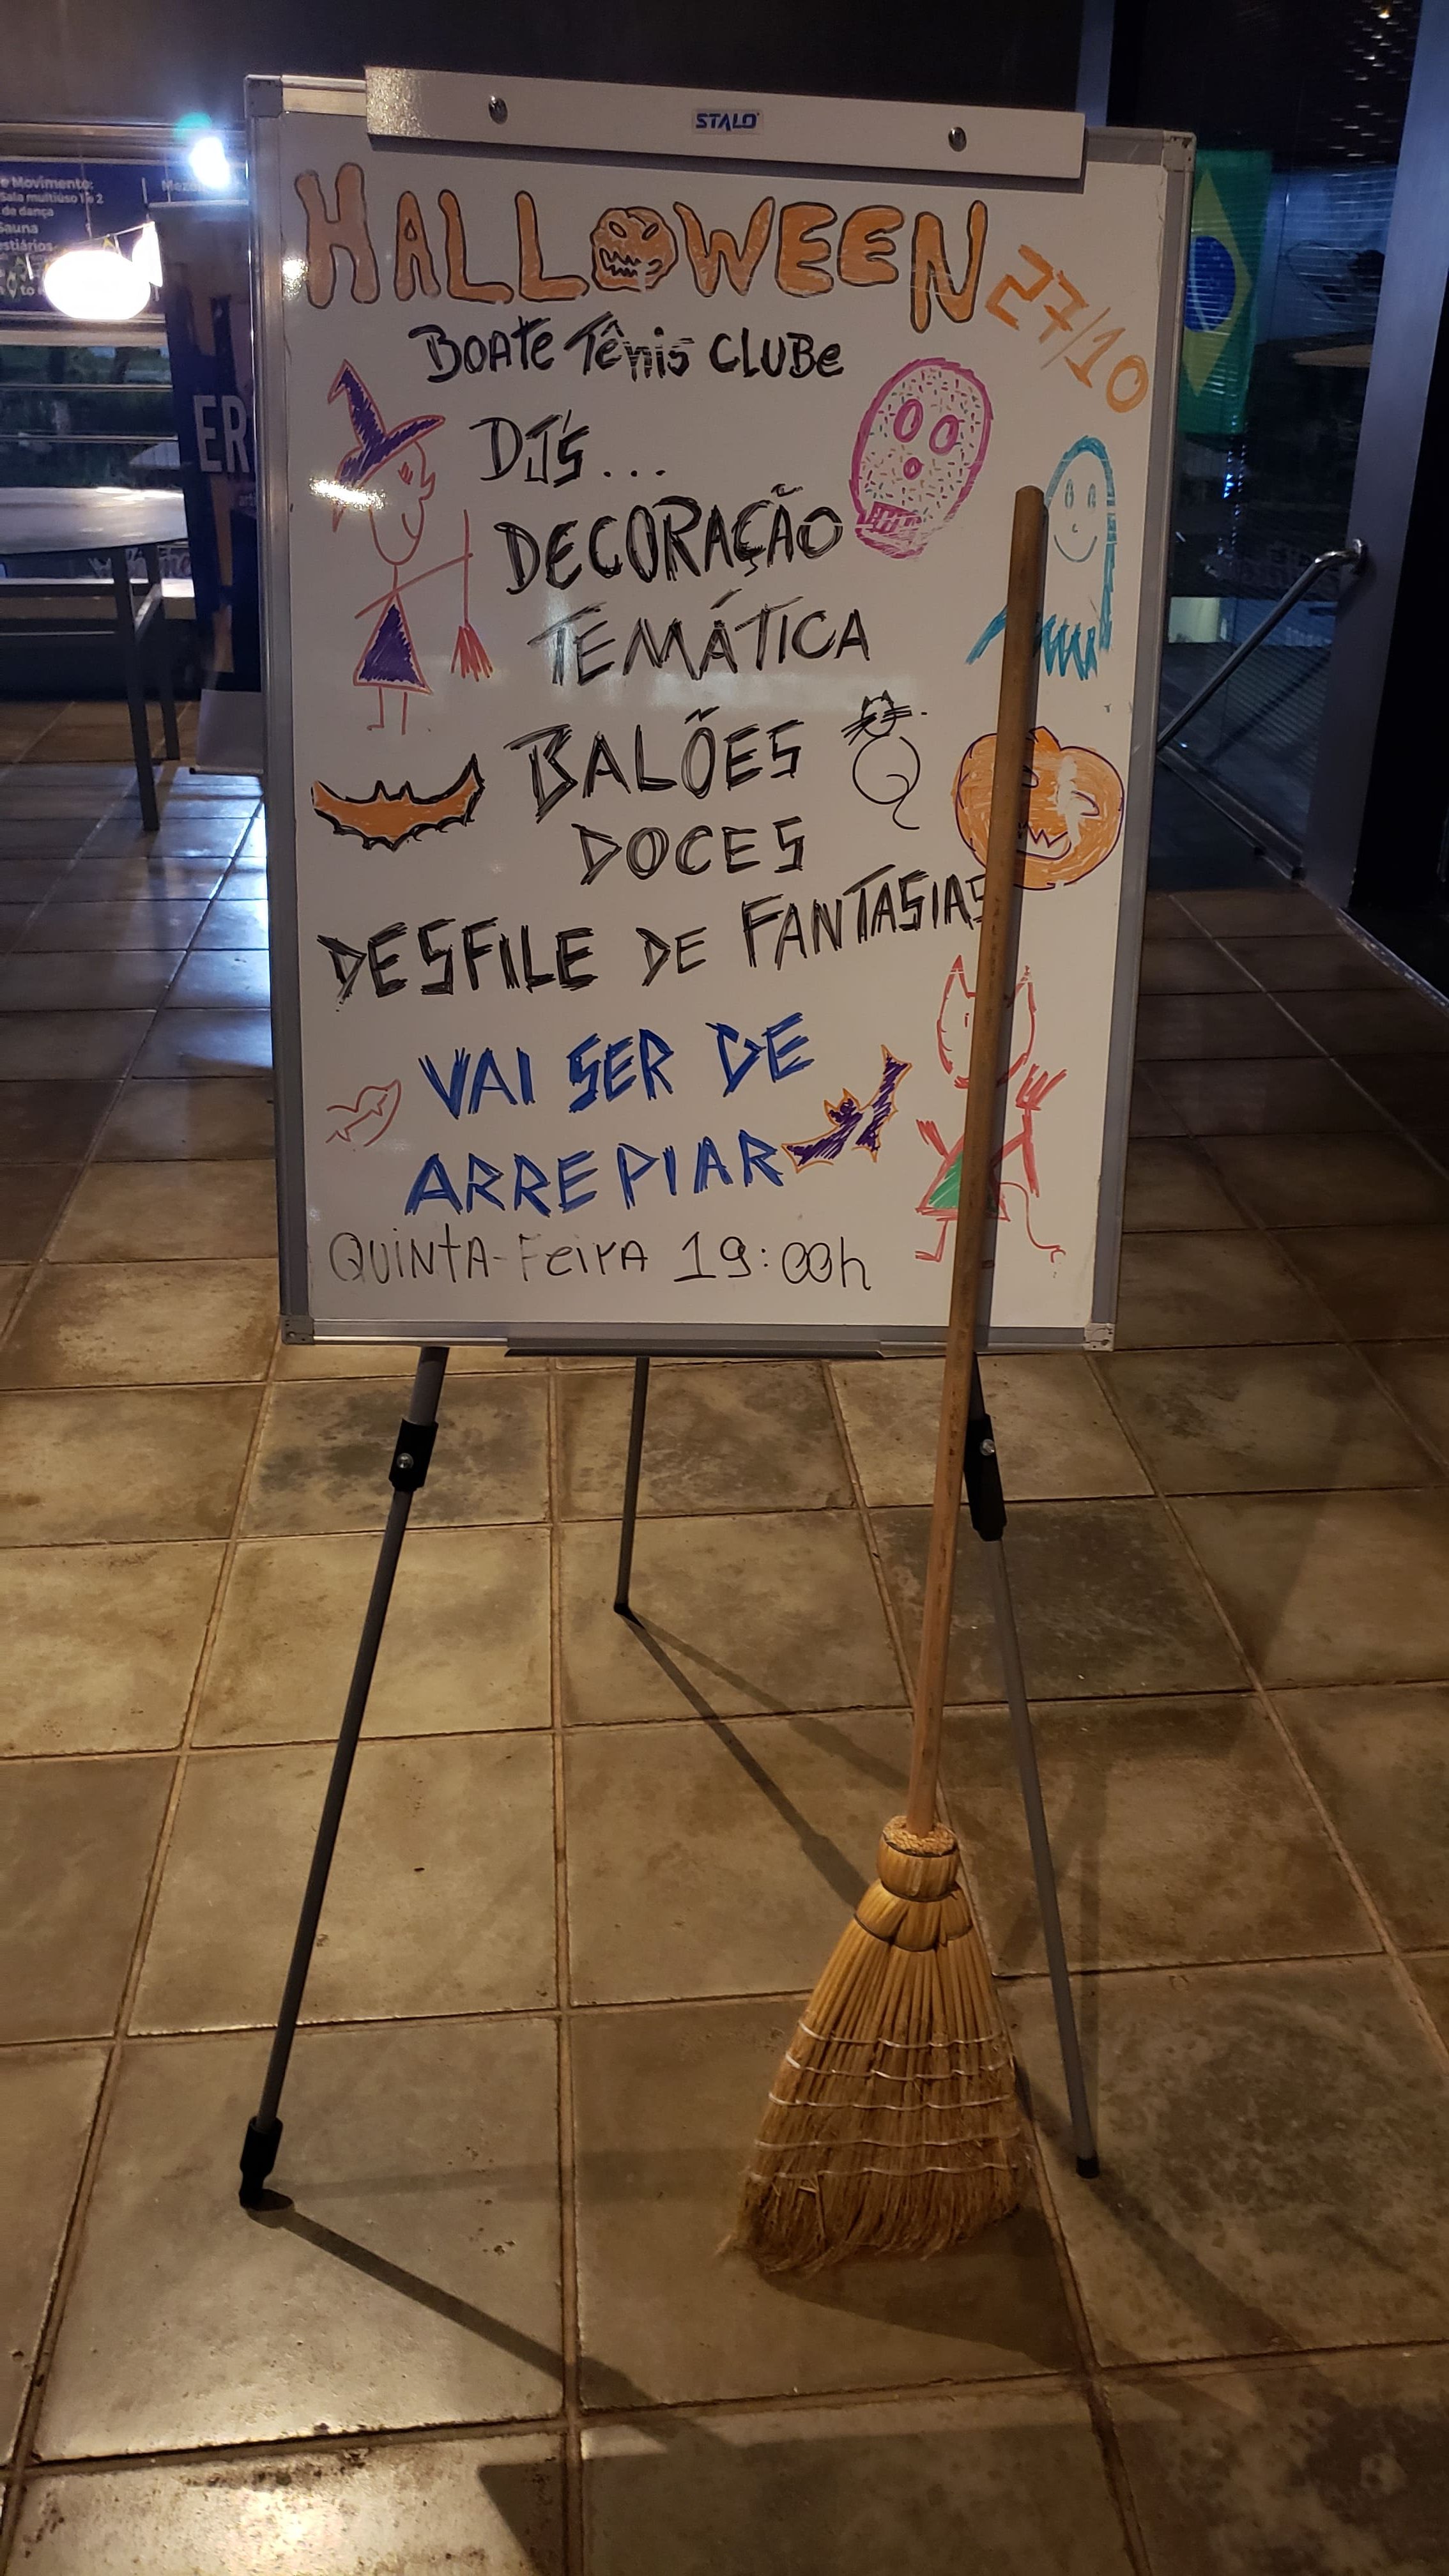 STALO
HALLOWEEN 27/10
BOATE TÊNIS CLUBE
DJ'S...
DECORAÇÃO
TEMÁTICA
BALÕES
DOCES
DESFILE DE FANTASIAS
VAI SER DE
ARREPIAR
QUINTA-FEIRA 19:00h
e Movimento:
Sala multiuso 1 e 2
de dança
Sauna
estiários
ER